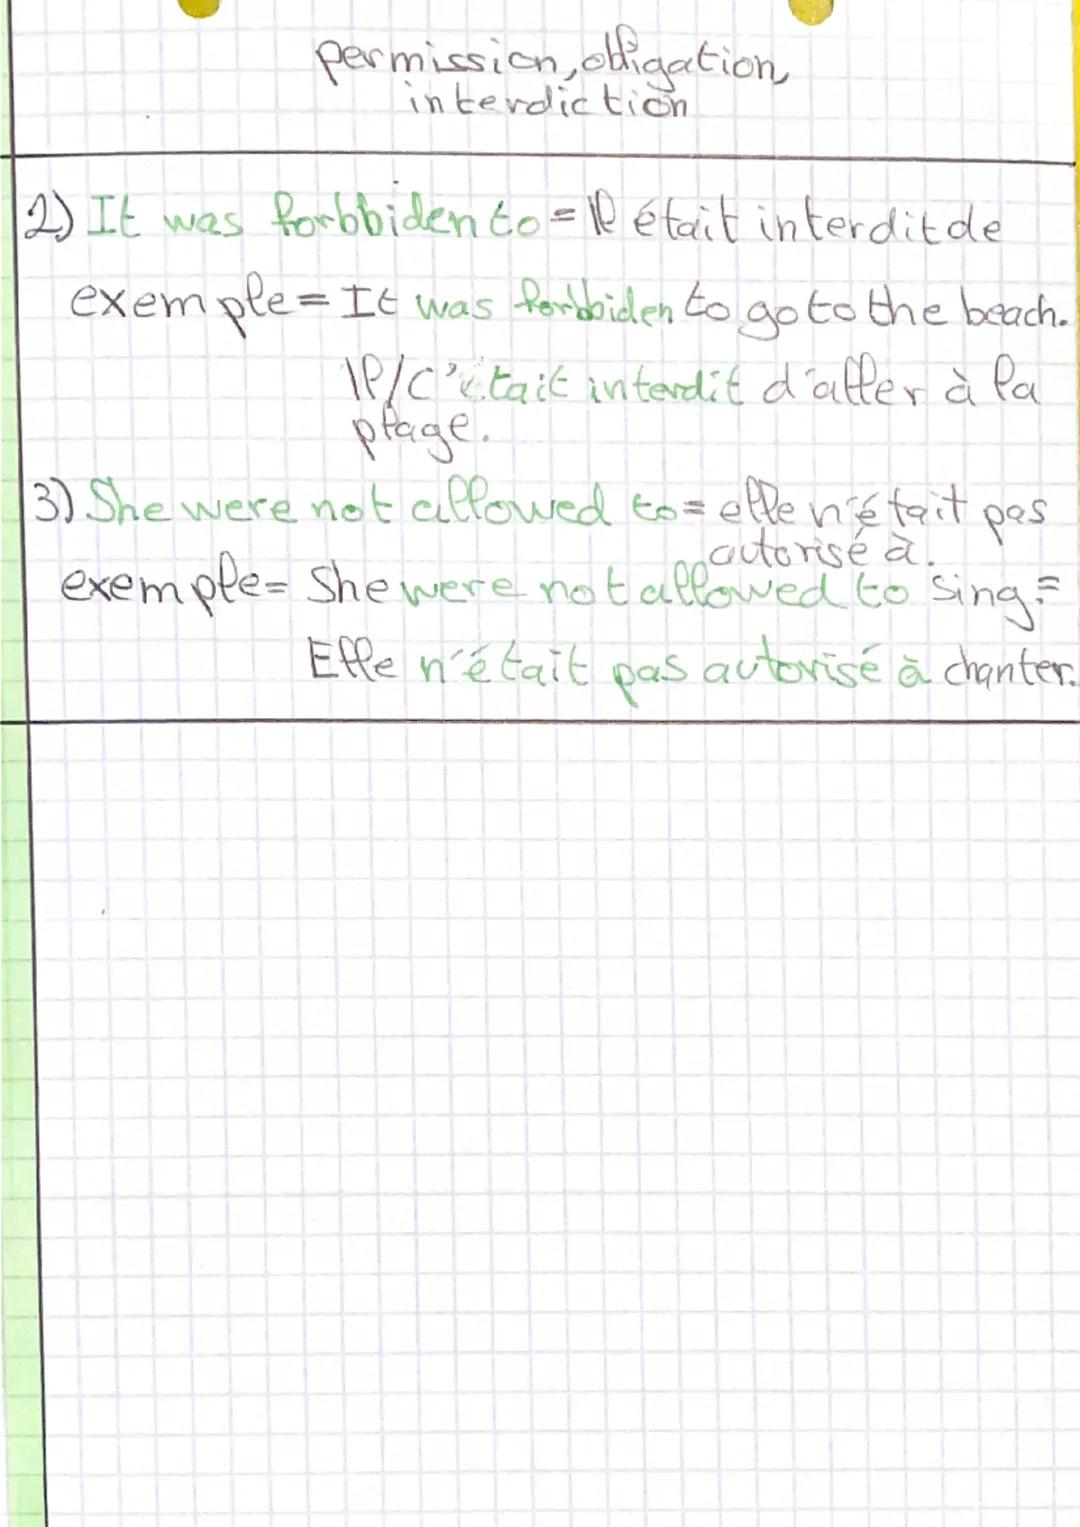 permission, obligation,
interdiction
2) It was forbbiden to = Il était interdit de
exemple = It was forbbiden to go to the beach.
Il/C'était interdit d'aller à la
plage.
3) She were not allowed to = elle n'était pas
autorisé à.
exemple = She were not allowed to sing =
Elle n'était pas autorisé à chanter.